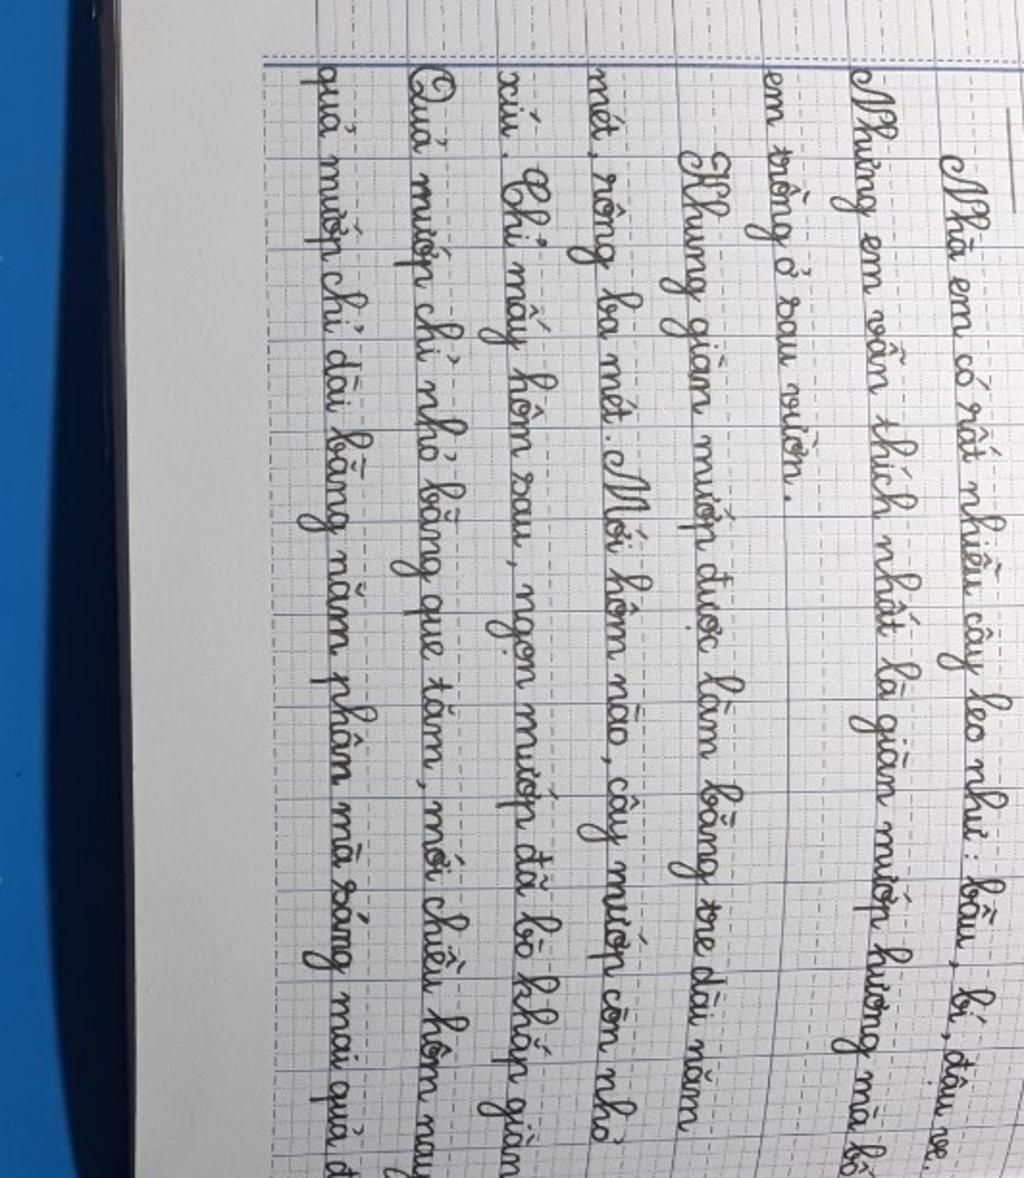 Nhà em có rất nhiều cây leo như: bầu, bí, đậu ve.
Nhưng em vẫn thích nhất là giàn mướp hương mà bố
em trồng ở sau vườn.
Khung giàn mướp được làm bằng tre dài năm
mét, rông ba mét. Mới hôm nào, cây mướp còn nhỏ
xíu. Chỉ mấy hôm sau, ngọn mướp đã bò khắp giàn
Quả mướp chỉ nhỏ bằng que tăm, mới chiều hôm nay
quả mướp chỉ dài bằng năm phân mà sáng mai quả